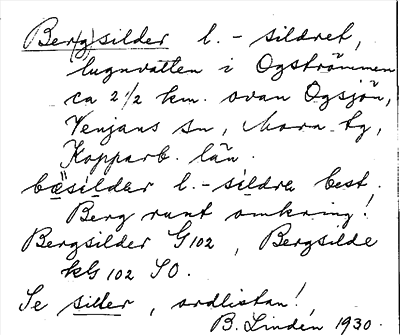 Ber(g)silder l. - sildret,
lugnvatten i Ogströmmen
ca 2 1/2 km. ovan Ogsjön,
Venjans sn, Mora tg,
Kopparb. län.
l. - sildra best.
Berg runt omkring!
Bergsilder G102, Bergsilde
kbl 102 SO.
Se siller, ordlistan!
B. Lindén 1930.